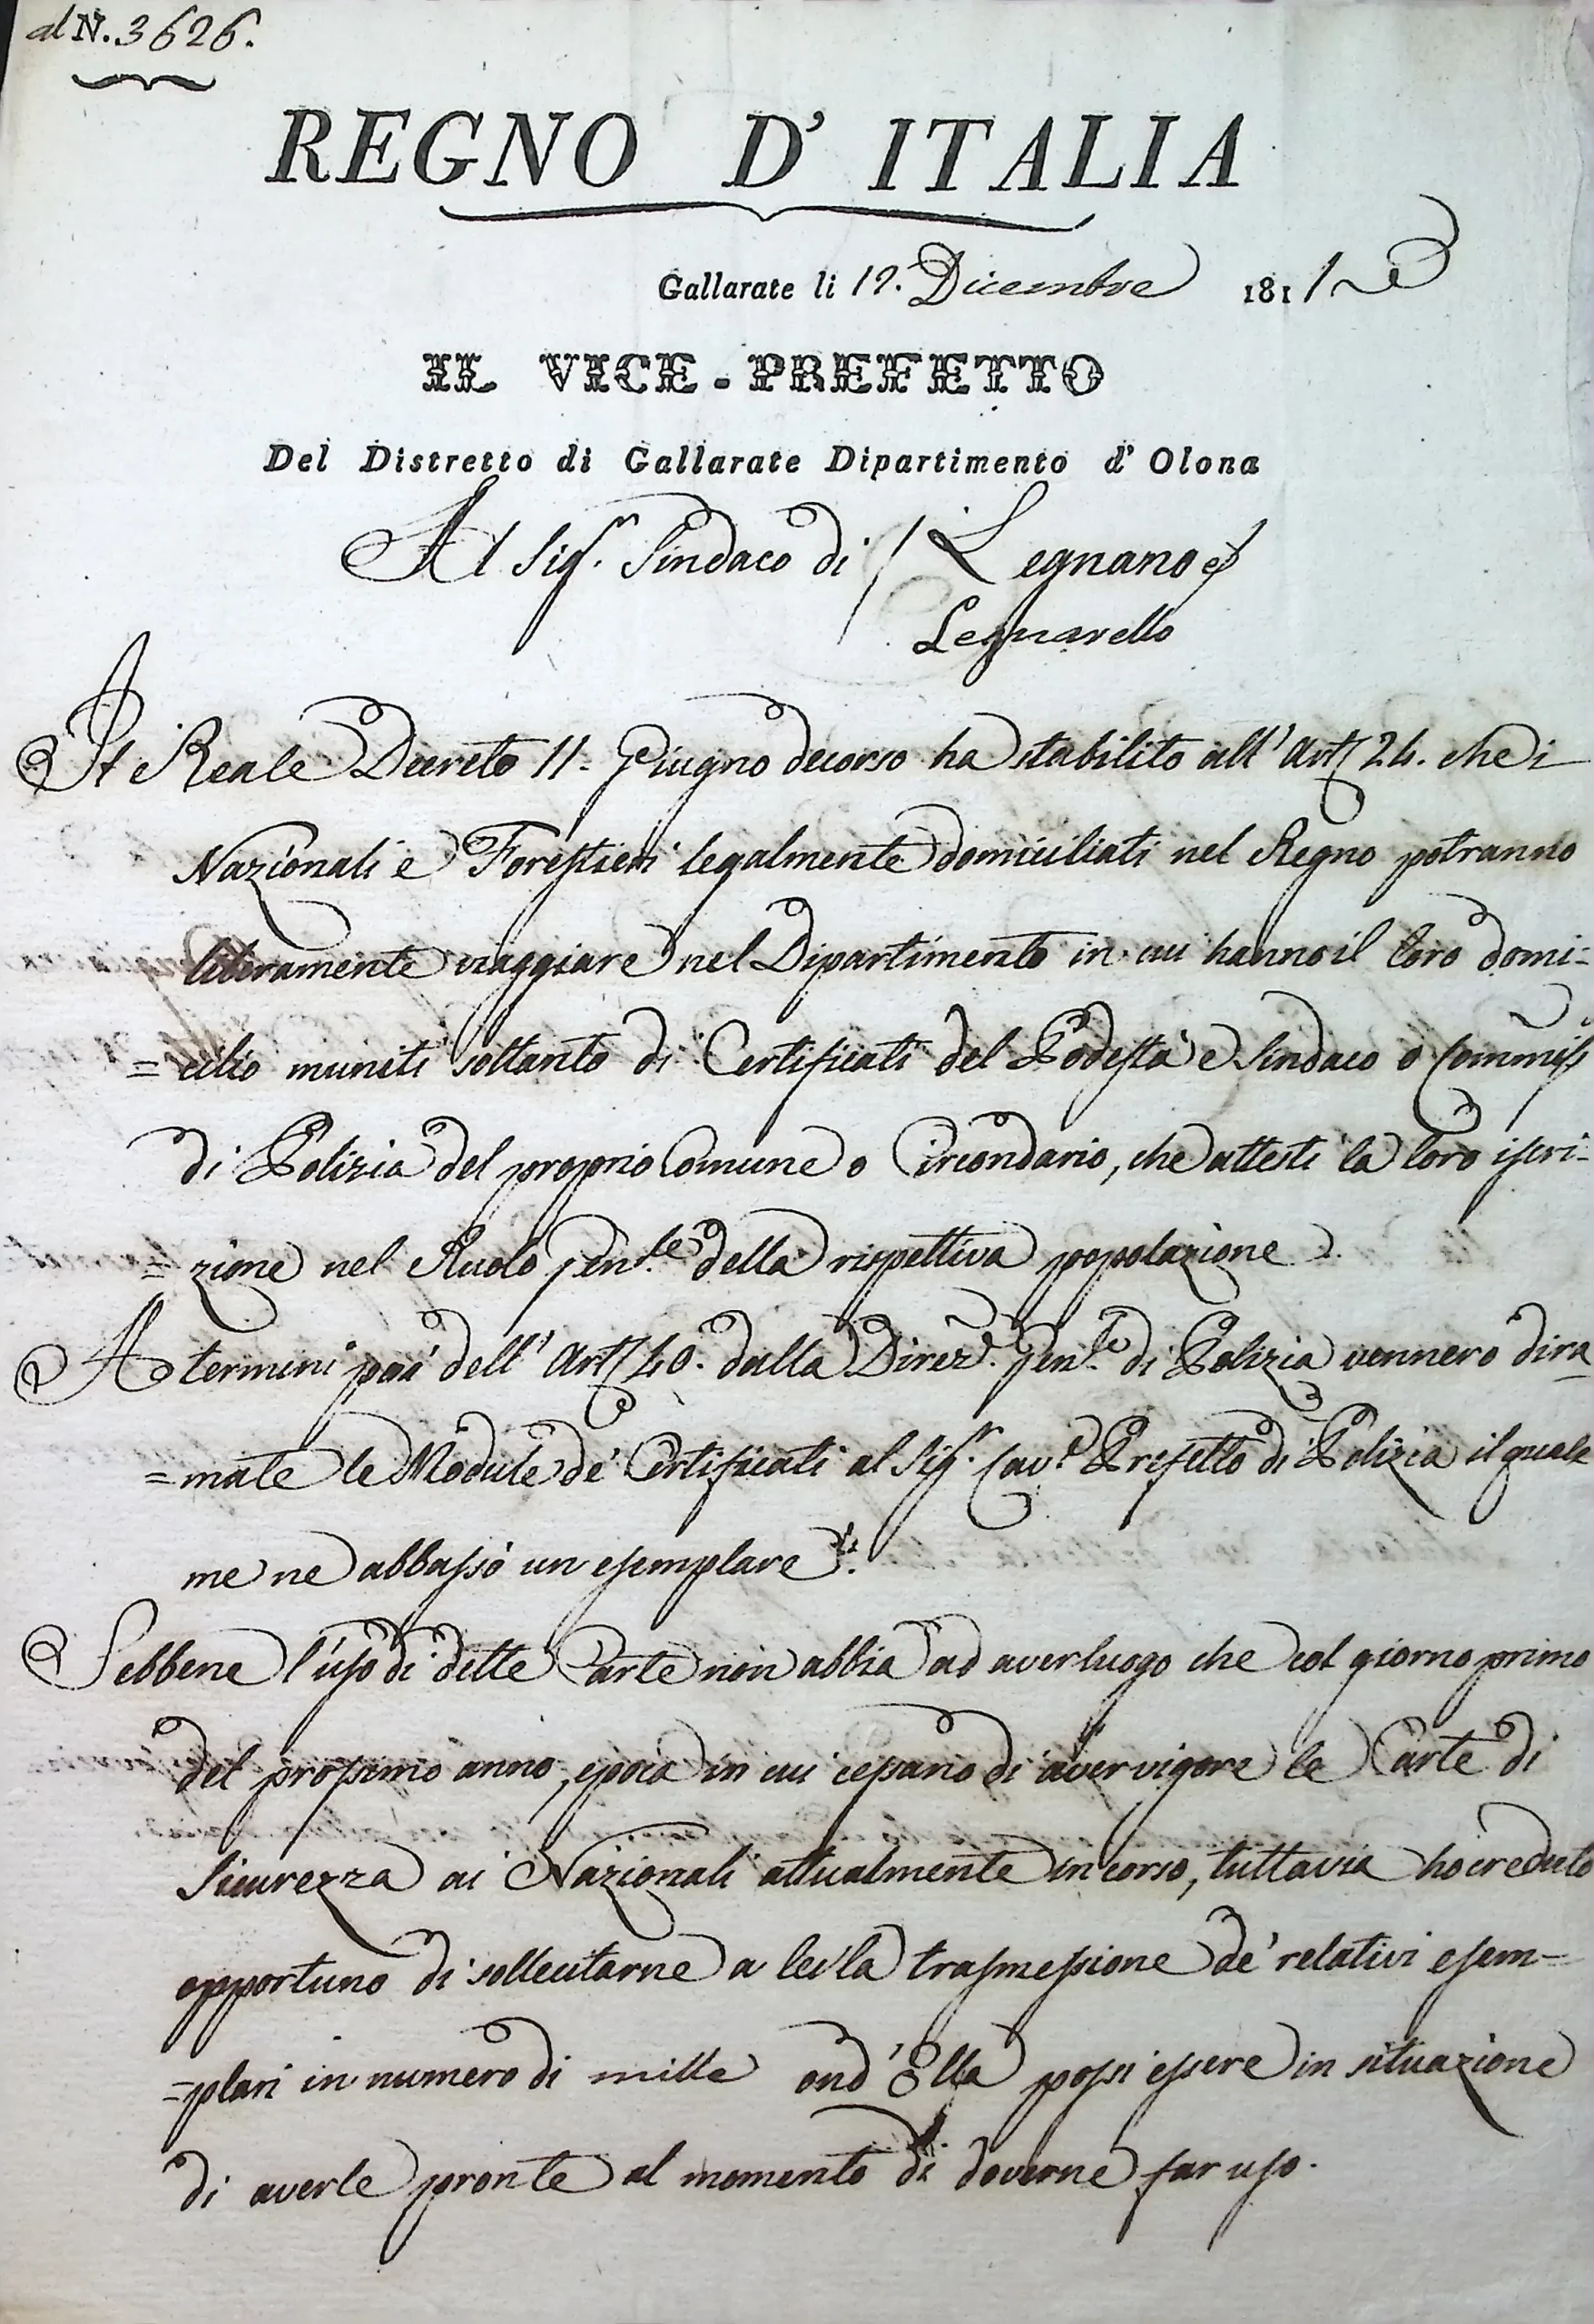 al N. 3626.
REGNO D' ITALIA
Gallarate li 19. Dicembre 1811
IL VICE-PREFETTO
Del Distretto di Gallarate Dipartimento d' Olona
Al Sig.r Sindaco di Legnano e
Legnarello
Il Reale Decreto 11. Giugno decorso ha stabilito all' Art. 24. che i
Nazionali e Forestieri legalmente domiciliati nel Regno potranno
liberamente viaggiare nel Dipartimento in cui hanno il loro domi-
=cilio muniti soltanto di Certificati del Podestà e Sindaco o Commiss
di Polizia del proprio Comune o Circondario, che attesti la loro iscri-
=zione nel Ruolo gen.le della rispettiva popolazione.
A termini poi dell' Art. 40. dalla Direz.e Gen.le di Polizia vennero dira
=mate le Module de' Certificati al Sig.r Cav.e Prefetto di Polizia il quale
me ne abbassò un esemplare.
Sebbene l'uso di dette Carte non abbia ad aver luogo che col giorno primo
del prossimo anno, epoca in cui cessano di aver vigore le Carte di
Sicurezza ai Nazionali attualmente in corso, tuttavia ho creduto
opportuno di sollecitarne a lei la trasmessione de' relativi esem=
=plari in numero di mille ond' Ella possi essere in situazione
di averle pronte al momento di doverne far uso.